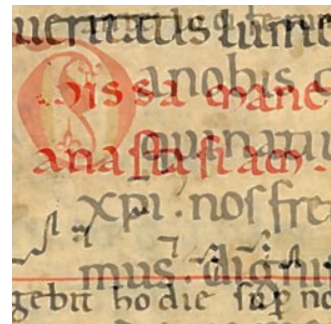 ueritatis lume
a nobis c
Missa mane
qui natiu
anastasiam.
xpi. nos fre
mus. digni
gebit hodie sup no